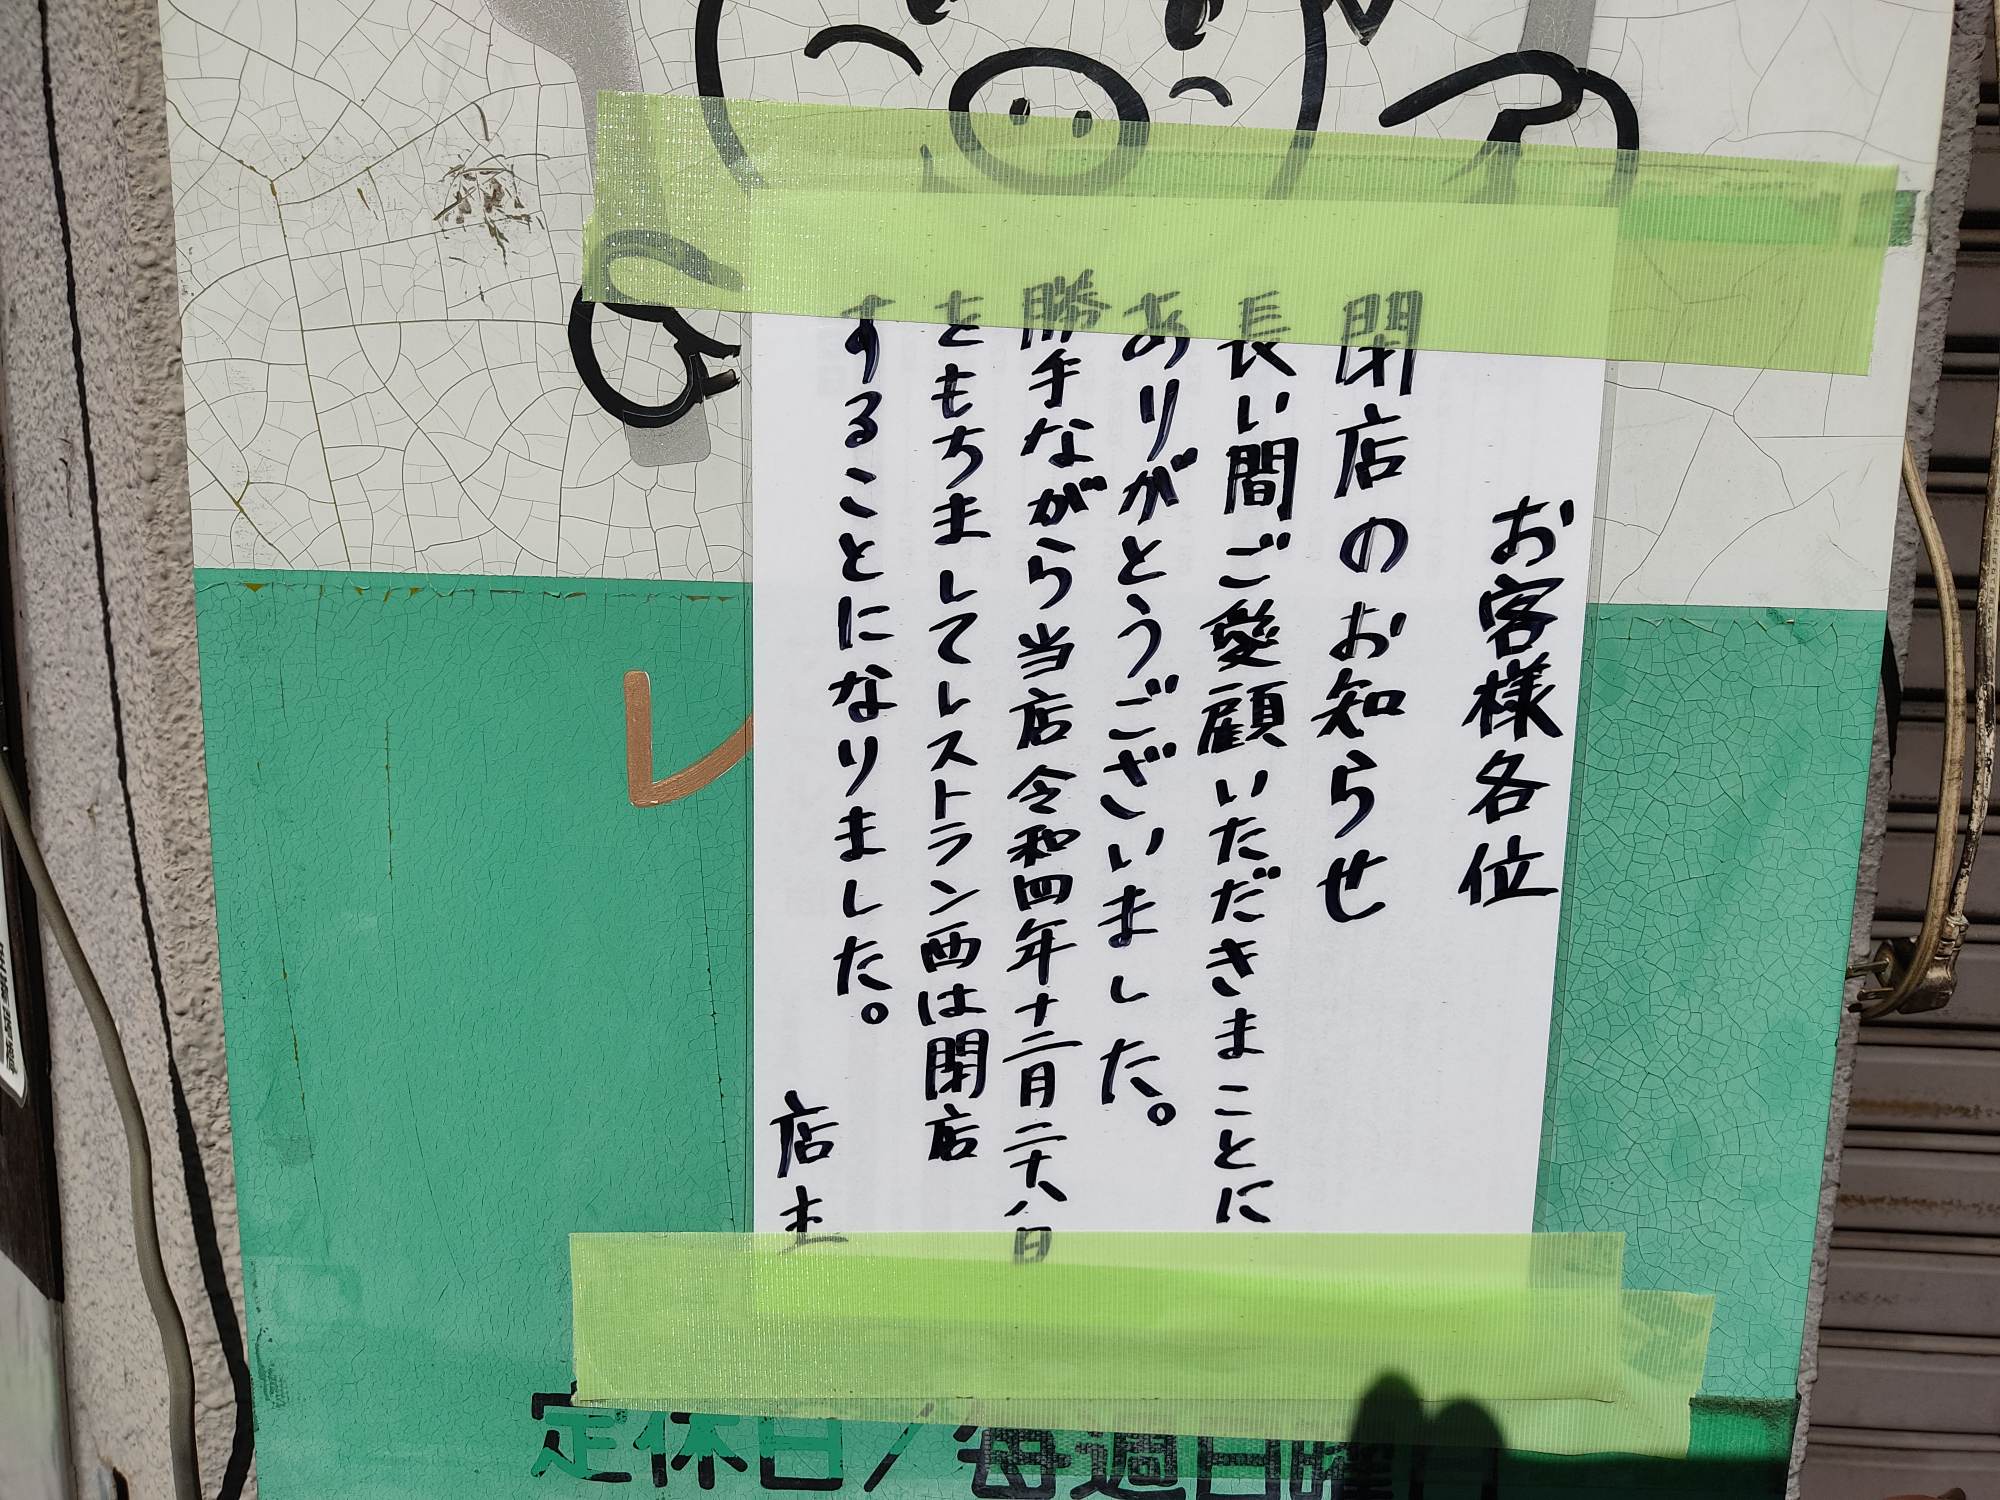 お客様各位
閉店のお知らせ
長い間ご愛顧いただきまことに
ありがとうございました。
勝手ながら当店令和四年十二月二十八日
をもちましてレストラン西は閉店
することになりました。
店主
レ
定休日/毎週日曜日